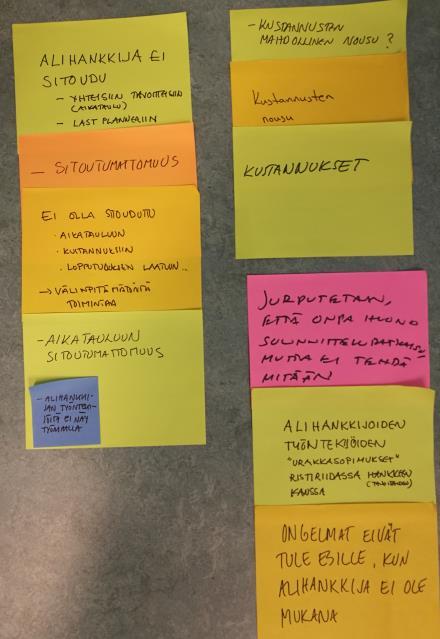 ALIHANKKIJA EI
SITOUDU
- YHTEISIIN TAVOITTEISIIN
(AIKATAULU)
- LAST PLANNERIIN
- SITOUTUMATTOMUUS
EI OLLA SITOUDUTTU
· AIKATAULUUN
· KUSTANNUKSIIN
· LOPPUTUOTTEEN LAATUUN..
→ VÄLINPITÄMÄTÖNTÄ
TOIMINTAA
- AIKATAULUUN
SITOUTUMATTOMUUS
- ALIHANKKI-
JAN TYÖNTEKI-
JÖITÄ EI NÄY
TYÖMAALLA
- KUSTANNUSTEN
MAHDOLLINEN NOUSU?
Kustannusten
nousu
KUSTANNUKSET
JURPUTETAAN,
ETTÄ ONPA HUONO
SUUNNITTELURATKAISU
MUTTA EI TEHDÄ
MITÄÄN
ALIHANKKIJOIDEN
TYÖNTEKIJÖIDEN
"URAKKASOPIMUKSET"
RISTIRIIDASSA HANKKEEN
KANSSA
ONGELMAT EIVÄT
TULE ESILLE, KUN
ALIHANKKIJA EI OLE
MUKANA